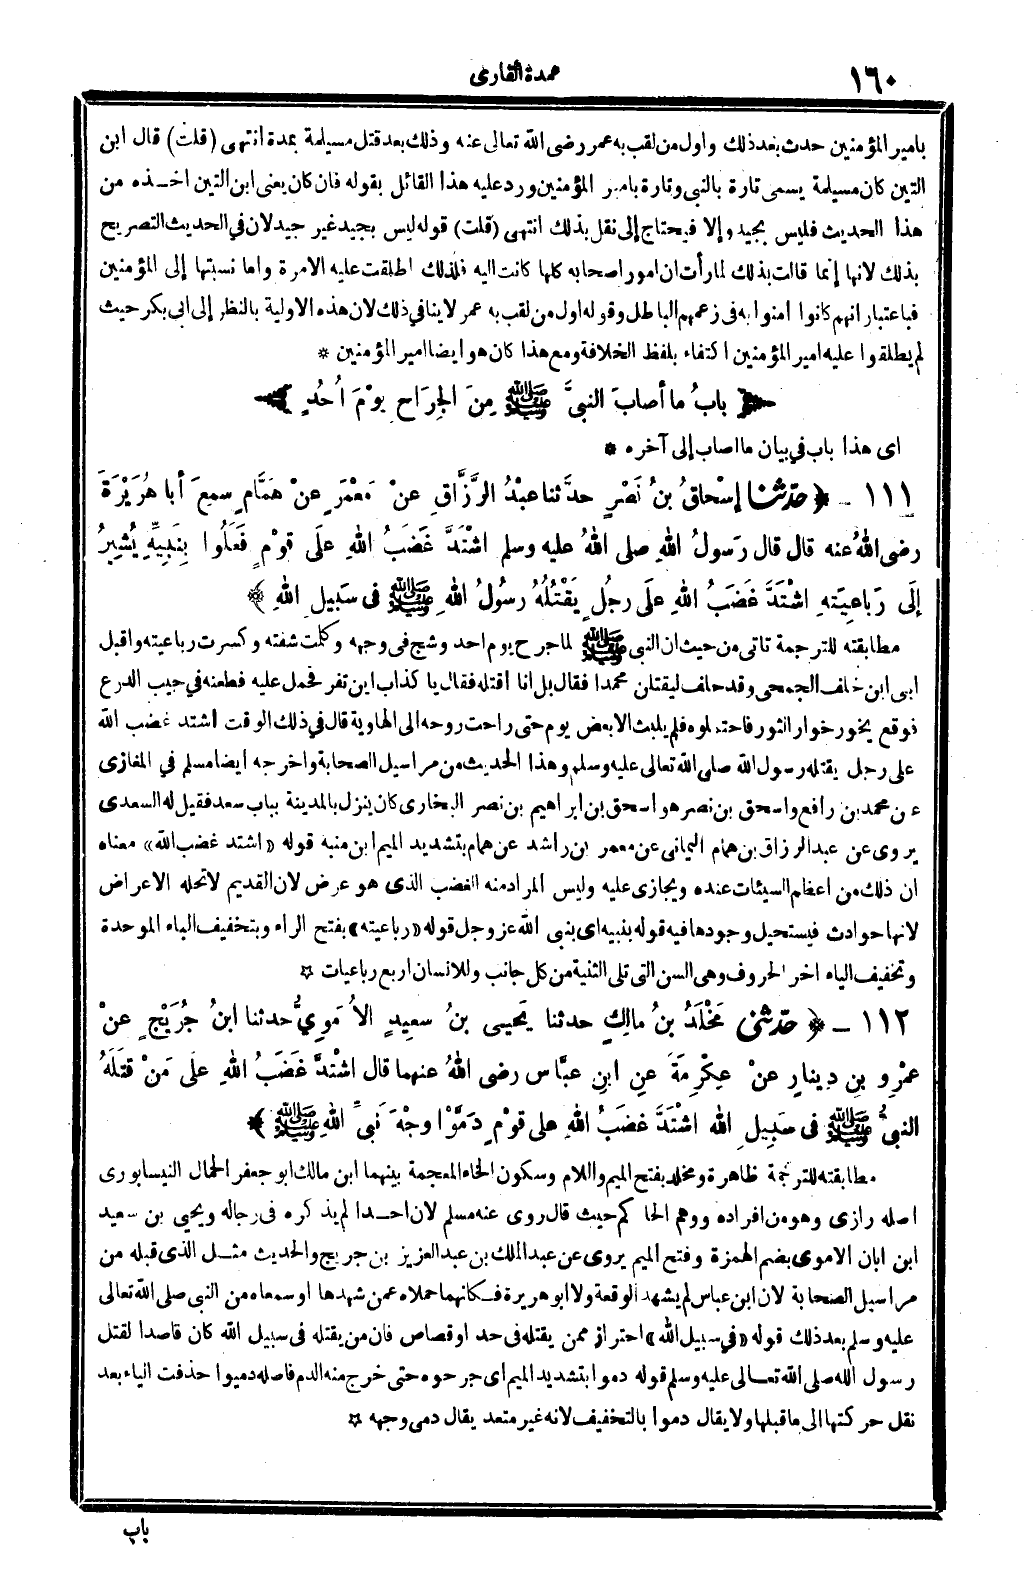 ١٦٠
عمدة القارى
بامير المؤمنين حدث بعد ذلك واول من لقب به عمر رضى الله تعالى عنه وذلك بعد قتل مسيلمة بمدة انتهى (قلت) قال ابن
التين كان مسيلمة يسمى تارة بالنبى وتارة بامير المؤمنين ورد عليه هذا القائل بقوله فان كان يعنى ابن التين اخـذه من
هذا الحديث فليس بجيد وإلا فيحتاج إلى نقل بذلك انتهى (قلت) قوله ليس بجيد غير جيد لان في الحديث التصريح
بذلك لانها إنما قالت بذلك لما رأت ان امور اصحابه كلها كانت اليه فلذلك اطلقت عليه الامرة واما نسبتها إلى المؤمنين
فباعتبار انهم كانوا امنوا به فى زعمهم الباطل وقوله اول من لقب به عمر لا ينافى ذلك لان هذه الاولية بالنظر إلى ابى بكر حيث
لم يطلقوا عليه امير المؤمنين اكتفاء بلفظ الخلافة ومع هذا كان هو ايضا امير المؤمنين *
باب ما أصاب النبىَّ ﷺ مِنَ الجِرَاحِ يوْمَ أُحُدٍ
اى هذا باب في بيان ما اصاب إلى آخره *
١١١ ـ ﴿ حدّثنا إسْحاقُ بنُ نَصْرٍ حدَّثنا عبْدُ الرَّزَّاقِ عنْ مَعْمَرٍ عنْ هَمَّامٍ سمِعَ أبا هُرَيْرَةَ
رضى اللهُ عنه قال قال رَسولُ اللهِ صلى اللهُ عليه وسلم اشْتَدَّ غَضَبُ اللهِ علَى قوْمٍ فَعَلُوا بِنَبِيِّهِ يُشِيرُ
إلَى رَباعِيَتهِ اشْتَدَّ غَضَبُ اللهِ علَى رجُلٍ يَقْتُلُهُ رسولُ اللهِ ﷺ فى سَبِيلِ اللهِ ﴾
مطابقته للترجمة تاتى من حيث ان النبى ﷺ لما جرح يوم احد وشج فى وجهه وكلمت شفته وكسرت رباعيته واقبل
ابى ابن خلف الجمحى وقد حلف ليقتلن محمدا فقال بل انا اقتله فقال يا كذاب اين تفر فحمل عليه فطعنه في جيب الدرع
فوقع يخور خوار الثور فاحتملوه فلم يلبث الا بعض يوم حتى راحت روحه الى الهاوية قال في ذلك الوقت اشتد غضب الله
على رجل يقتله رسول الله صلى الله تعالى عليه وسلم وهذا الحديث من مراسيل الصحابة واخرجه ايضا مسلم في المغازى
عن محمد بن رافع واسحق بن نصر هو اسحق بن ابراهيم بن نصر البخارى كان ينزل بالمدينة بباب سعد فقيل له السعدى
يروى عن عبد الرزاق بن همام اليمانى عن معمر بن راشد عن همام بتشديد الميم ابن منبه قوله «اشتد غضب الله» معناه
ان ذلك من اعظم السيئات عنده ويجازى عليه وليس المراد منه الغضب الذى هو عرض لان القديم لا تحله الاعراض
لانها حوادث فيستحيل وجودها فيه قوله بنبيه اى بنبى الله عز وجل قوله «رباعيته» بفتح الراء وبتخفيف الباء الموحدة
وتخفيف الياء اخر الحروف وهى السن التى تلى الثنية من كل جانب وللانسان اربع رباعيات ☆
١١٢ ـ ﴿ حدّثنى مَخْلَدُ بنُ مالِكٍ حدثنا يَحيى بنُ سعِيدٍ الأُمَوِيُّ حدثنا ابنُ جُرَيْجٍ عنْ
عمْرِو بنِ دِينارٍ عنْ عِكْرِمَةَ عنِ ابنِ عبَّاس رضى اللهُ عنهما قال اشْتَدَّ غَضَبُ اللهِ علَى مَنْ قتَلَهُ
النبىُّ ﷺ فى سَبِيلِ الله اشْتَدَّ غضَبُ اللهِ على قوْمٍ دَمَّوْا وجْهَ نَبىِّ اللهِ ﷺ ﴾
مطابقته للترجمة ظاهرة ومخلد بفتح الميم واللام وسكون الخاء المعجمة بينهما ابن مالك ابو جعفر الحمال النيسابورى
اصله رازى وهو من افراده ووهم الحاكم حيث قال روى عنه مسلم لان احـدا لم يذكره فى رجاله ويحيى بن سعيد
ابن ابان الاموى بضم الهمزة وفتح الميم يروى عن عبد الملك بن عبد العزيز بن جريج والحديث مثـل الذى قبله من
مراسيل الصحابة لان ابن عباس لم يشهد الوقعة ولا ابو هريرة فـكانهما حملاه عمن شهدها او سمعاه من النبى صلى الله تعالى
عليه وسلم بعد ذلك قوله «في سبيل الله» احتراز ممن يقتله فى حد او قصاص فان من يقتله فى سبيل الله كان قاصدا لقتل
رسول الله صلى الله تعـالى عليه وسلم قوله دموا بتشديد الميم اى جرحوه حتى خرج منه الدم فاصله دميوا حذفت الياء بعد
نقل حركتها الى ما قبلها ولا يقال دموا بالتخفيف لانه غير متعد يقال دمى وجهه ☆
باب